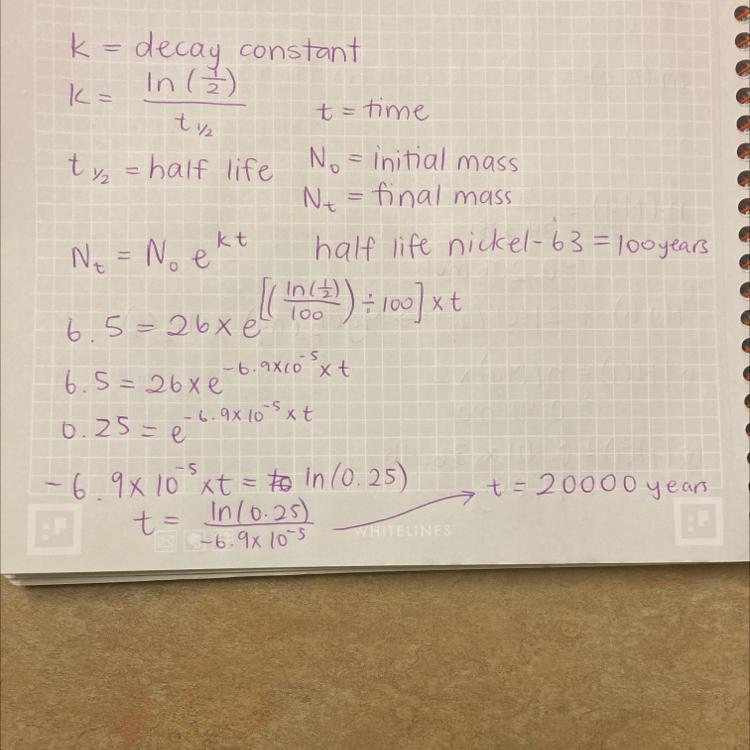 k = decay constant
k = ln(1/2) / t 1/2
t = time
t 1/2 = half life
N₀ = initial mass
Nt = final mass
Nt = N₀ e^kt
half life nickel-63 = 100 years
6.5 = 26 × e^[(ln(1/2)/100) ÷ 100] × t
6.5 = 26 × e^-6.9×10^-5 × t
0.25 = e^-6.9×10^-5 × t
-6.9 × 10^-5 × t = ln(0.25)
t = ln(0.25) / -6.9 × 10^-5
t = 20000 years
WHITELINES